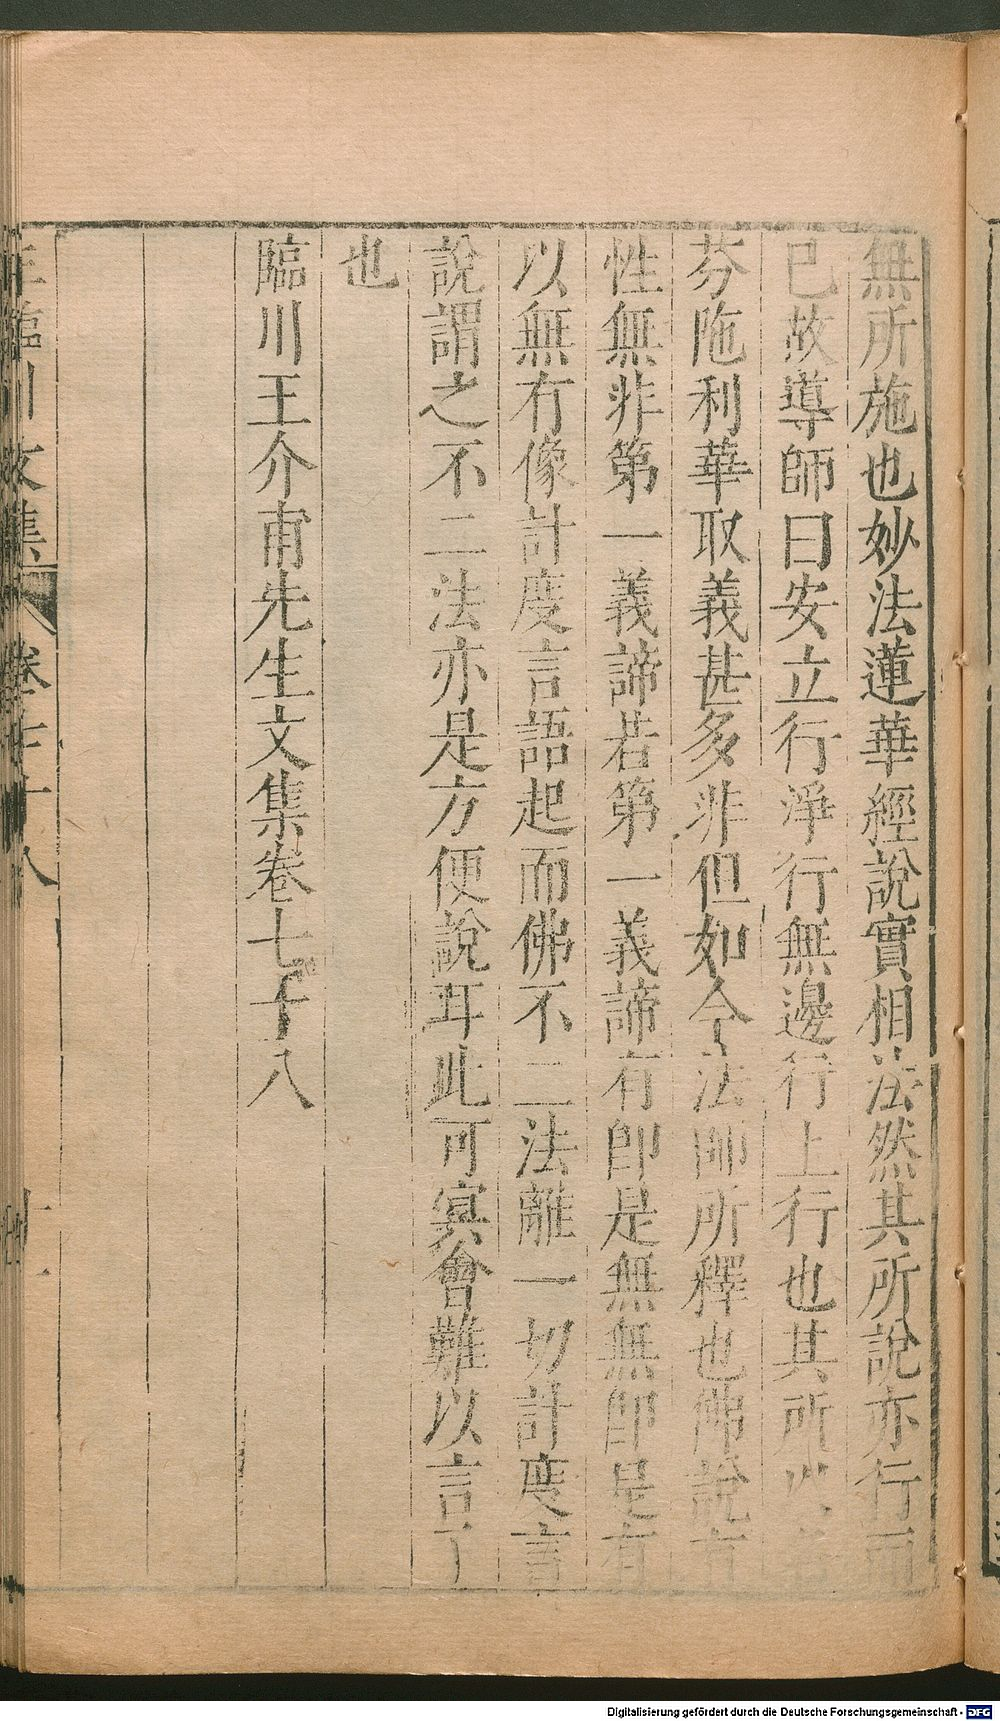 無所施也妙法蓮華經說實相法然其所說亦行而
已故導師曰安立行淨行無邊行上行也其所以
芬陁利華取義甚多非但如今法師所釋也佛說有
性無非第一義諦若第一義諦有卽是無無卽是有
以無冇像計度言語起而佛不二法離一切計度言
說謂之不二法亦是方便說耳此可冥會難以言了
也
臨川王介甫先生文集卷七十八
臨川 文集 卷七十八 十一
Digitalisierung gefördert durch die Deutsche Forschungsgemeinschaft - DFG